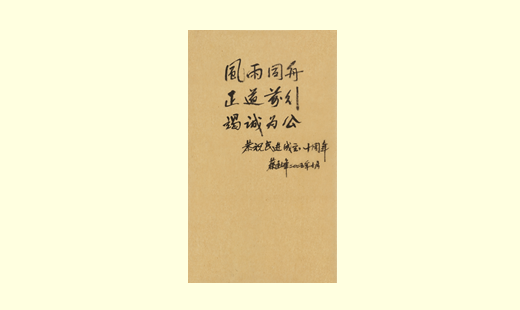 風雨同舟
正道前行
竭诚为公
恭祝民进成立六十周年
二〇〇五年十月